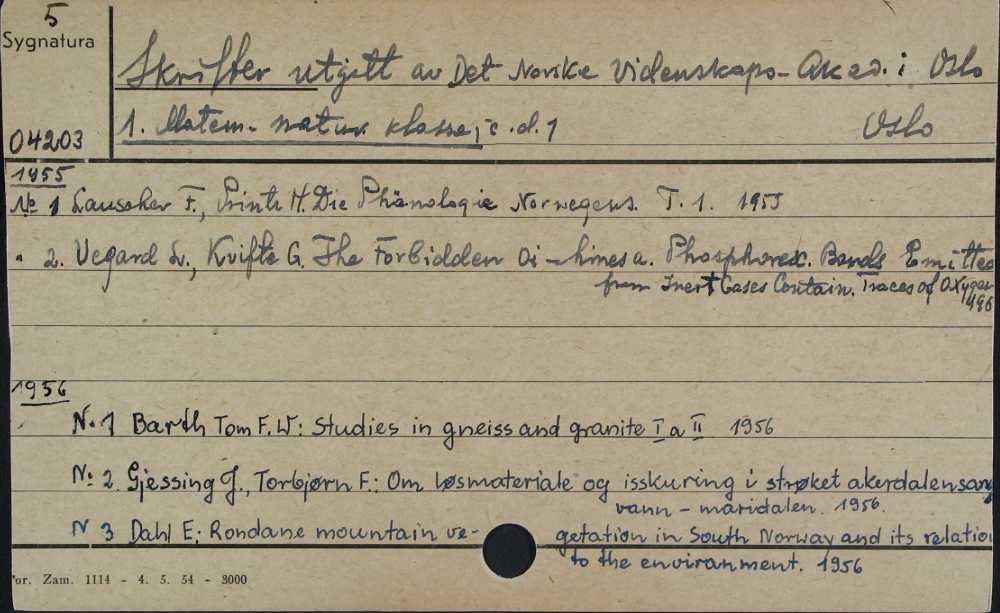 5
Sygnatura
Skrifter utgitt av Det Norske Videnskaps-Akad. i Oslo
1. Matem.- natur. klasse, c.d.1 Oslo
04203
1955
№ 1 Lauscher F., Printz H. Die Phänologie Norwegens. T. 1. 1955
" 2. Vegard L., Kvifte G. The Forbidden Oi-hines a. Phosphoresc. Bands Emitted
from Inert Gases Contain. Traces of Oxygen
1956
N. 1 Barth Tom F.W: Studies in gneiss and granite I a II 1956
№ 2. Gjessing J., Torbjørn F.: Om løsmateriale og isskuring i strøket akerdalensang
vann - maridalen. 1956.
N 3 Dahl E; Rondane mountain ve- getation in South Norway and its relation
to the enviranment. 1956
or. Zam. 1114 - 4. 5. 54 - 3000